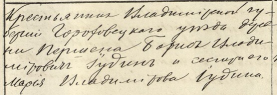 Крестьянинъ Владимірской гу
берніи Гороховецкаго уѣзда дерев
ни Першена Борисъ Влади
міровичъ Гудинъ и сестра его
Марія Владимірова Гудина.